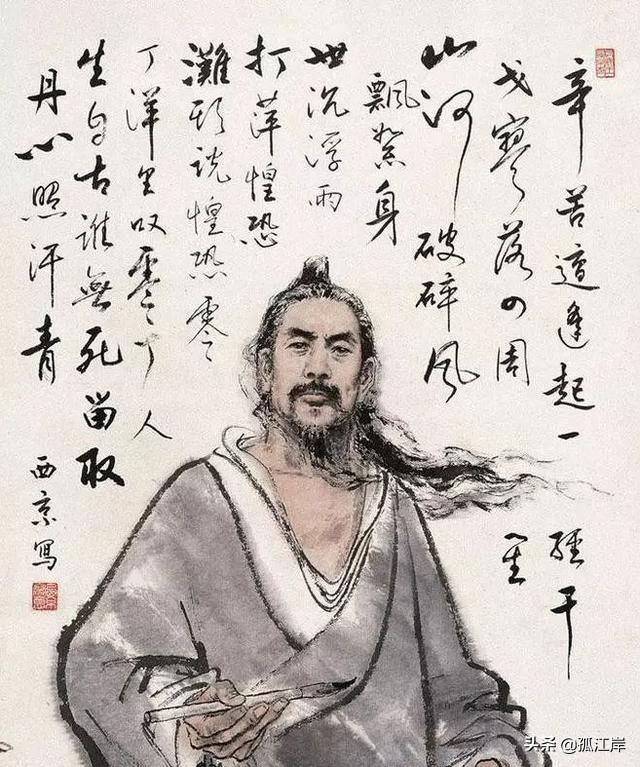 辛苦遭逢起一經干
戈寥落四周星
山河破碎風
飄絮身
世沉浮雨
打萍惶恐
灘頭説惶恐零
丁洋里叹零丁人
生自古誰無死留取
丹心照汗青
西京寫
头条 @孤江岸